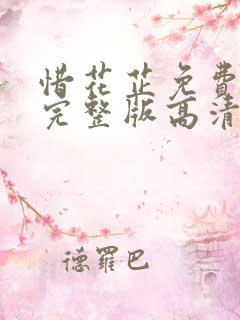 惜花芷免費
完整版高清
德羅巴